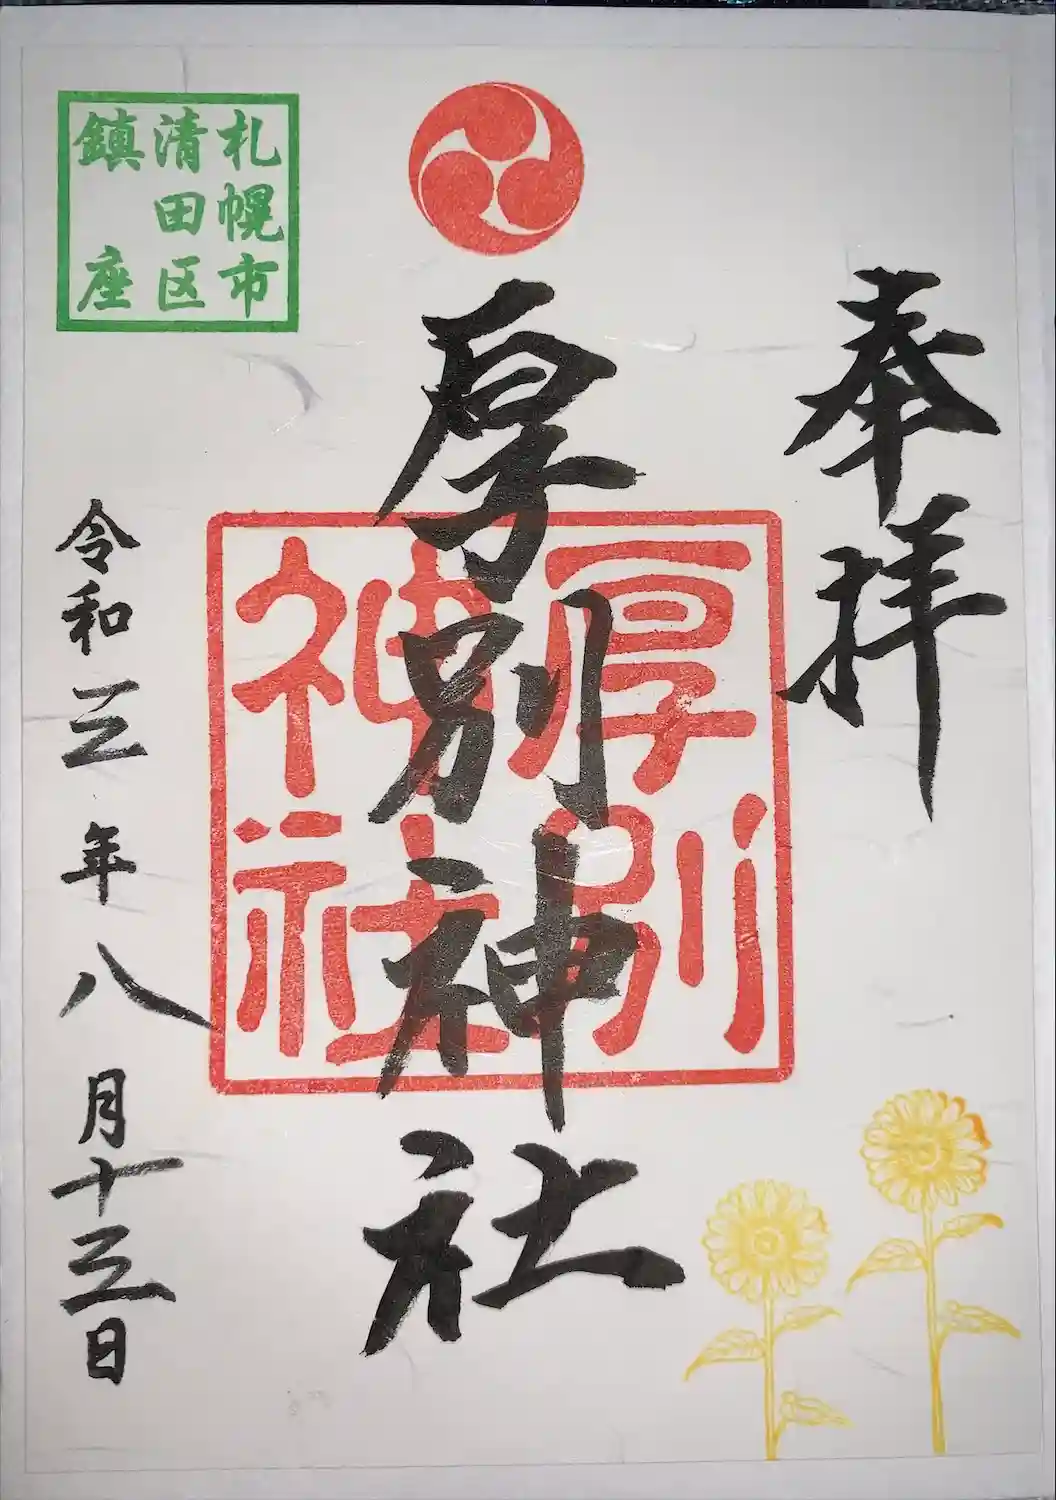 奉拝
厚別神社
厚別
神社
札幌市
清田区
鎮座
令和三年八月十三日